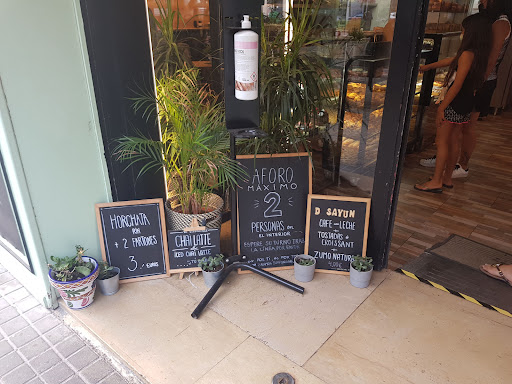 HORCHATA
+ 2 FARTONES
3.-
CHAI LATTE
ICED CHAI LATTE
AFORO
MÁXIMO
2
PERSONAS EN
EL INTERIOR
ESPERE SU TURNO TRAS
LA LÍNEA
D SAYUN
CAFE-LECHE
TOSTADAS o
CROISSANT
ZUMO NATURAL